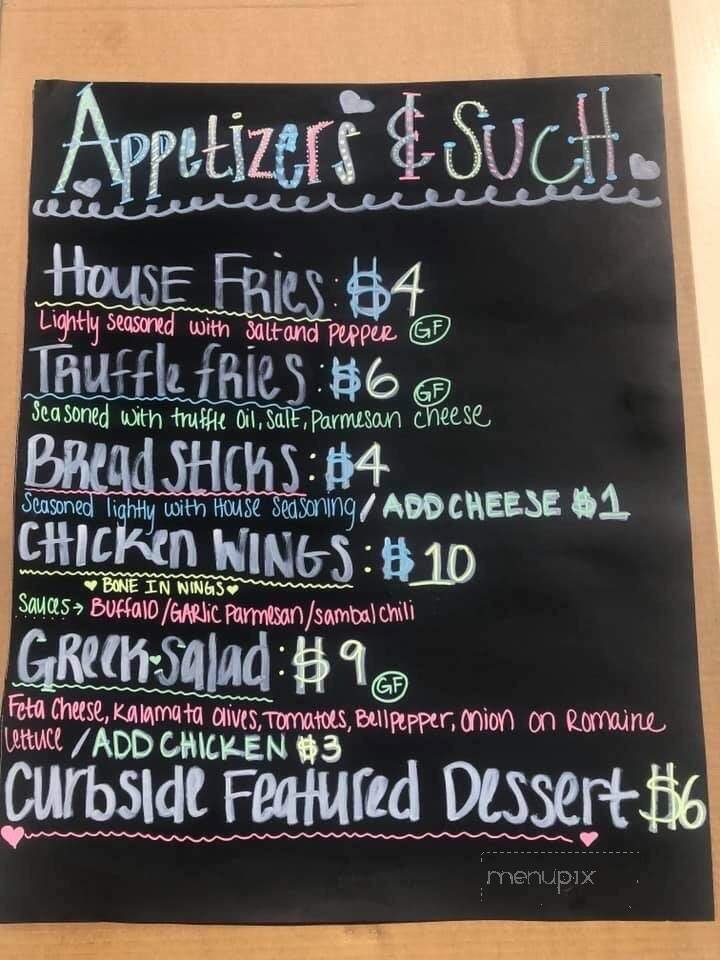 Appetizers & Such
House Fries: $4
Lightly seasoned with salt and pepper GF
Truffle fries: $6 GF
Seasoned with truffle oil, salt, Parmesan cheese
Bread Sticks: $4
Seasoned lightly with House seasoning / ADD CHEESE $1
CHICKen WINGS: $10
BONE IN WINGS
Sauces → Buffalo/GARlic Parmesan/sambal chili
Greek Salad: $9 GF
Feta Cheese, Kalamata Olives, Tomatoes, Bellpepper, Onion on Romaine
Lettuce / ADD CHICKEN $3
Curbside Featured Dessert $6
menupix